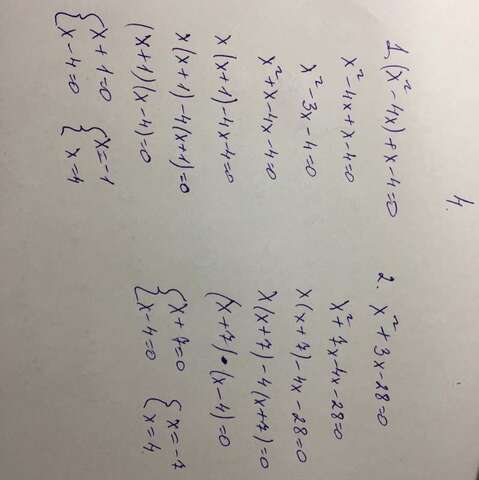 4.
1. (x² - 4x) + x - 4 = 0
x² - 4x + x - 4 = 0
x² - 3x - 4 = 0
x² + x - 4x - 4 = 0
x (x + 1) - 4x - 4 = 0
x (x + 1) - 4 (x + 1) = 0
(x + 1) (x - 4) = 0
{ x + 1 = 0 { x = -1
{ x - 4 = 0 { x = 4
2. x² + 3x - 28 = 0
x² + 7x - 4x - 28 = 0
x (x + 7) - 4x - 28 = 0
x (x + 7) - 4 (x + 7) = 0
(x + 7) • (x - 4) = 0
{ x + 7 = 0 { x = -7
{ x - 4 = 0 { x = 4.